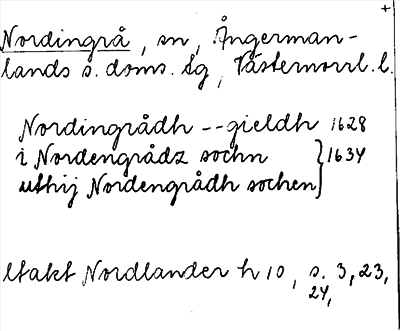 +
Nordingrå, sn, Ångerman-
lands s. doms. tg, Västernorrl. l.
Nordingrådh -- gieldh 1628
i Nordengrådz sochn } 1634
uthij Nordengrådh sochen
ltakt Nordlander h 10, s. 3, 23,
24,